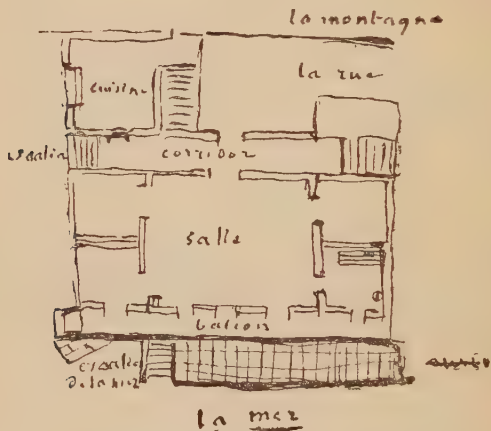 la montagne
la rue
cuisine
escalier
corridor
salle
balcon
escalier
de la mer
la mer